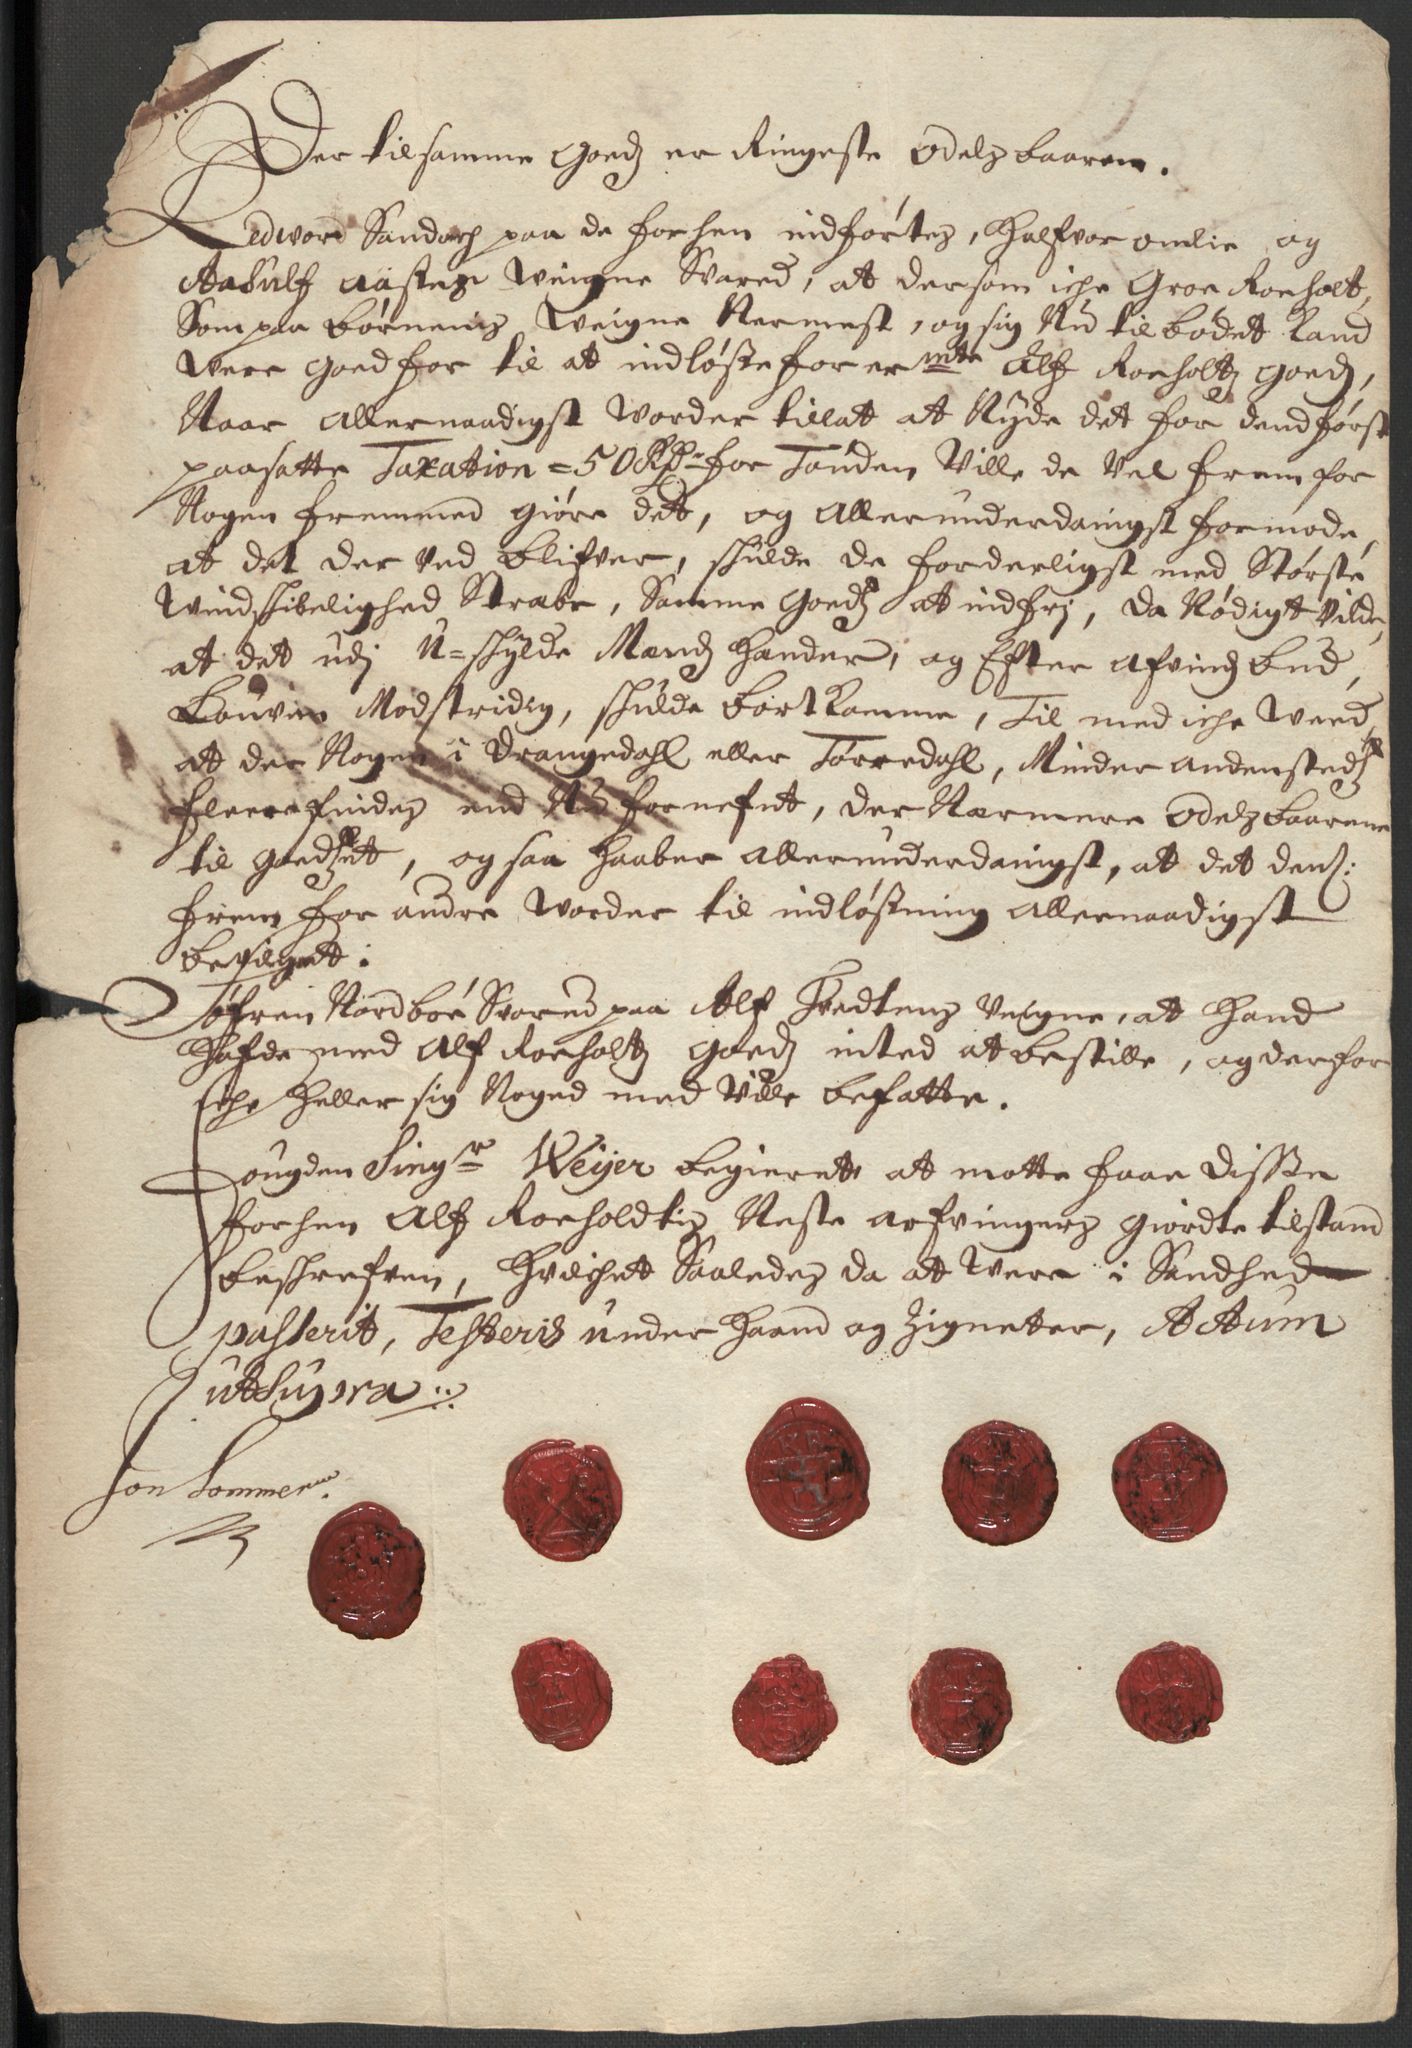 Der til samme Goedz er Ringeste Odelsbaaren.
Ledword Sandach paa de forhen indførtes, Halfvor omlie og
Aasulf Aastes Weigne Svared, at dersom iche Groe Roeholt,
Som paa Børnenis Weigne Nermest, og sig Nu tilbødet Kand
Were goed for til at indløsse for ermte Alf Roeholtz goedz,
Naar Allernaadigst worder tillat at Nyde det for dend først
paasatte Taxation = 50 Rdr for Tønden Ville de Vel frem for
Nogen fremmed giøre det, og Allerunderdanigst formode,
at det der ved blifver, skulde de forderligst med Største
Windskibelighed Strabe, Samme Goedtz at indfrj, da Nødigt Vilde,
at det udj U=skylde Mændz Hænder, og Efter Afvindz bud,
Louven Modstridig, skulde bortkomme, Til med iche Weed,
at der Nogen i Drangedahl eller Tørredahl, Minder andenstedtz
fleere findes end Nu fornefnt, der Nærmere Odelsbaarene
til goedtzet, og saa haaber Allerunderdanigst, at det dem
frem for andre Worder til indløsning Allernaadigst
bevilget.
Tøfren Nordboe Svared paa Alf Tvedtens Veigne, at Hand
Hafde med Alf Roeholtz goedz inted at bestille, og derfor
iche heller sig Noged med Ville befatte.
Fougden Singr Weyer begierete at motte faae disse
forhen Alf Roeholdtis Neste arfvingers giordte tilstand
beskrefven, Hvilchet Saaledes da at Were i Sandhed
passerit, Testeris under Haand og Zigneter, Actum
ut Supra
Jon Sommer